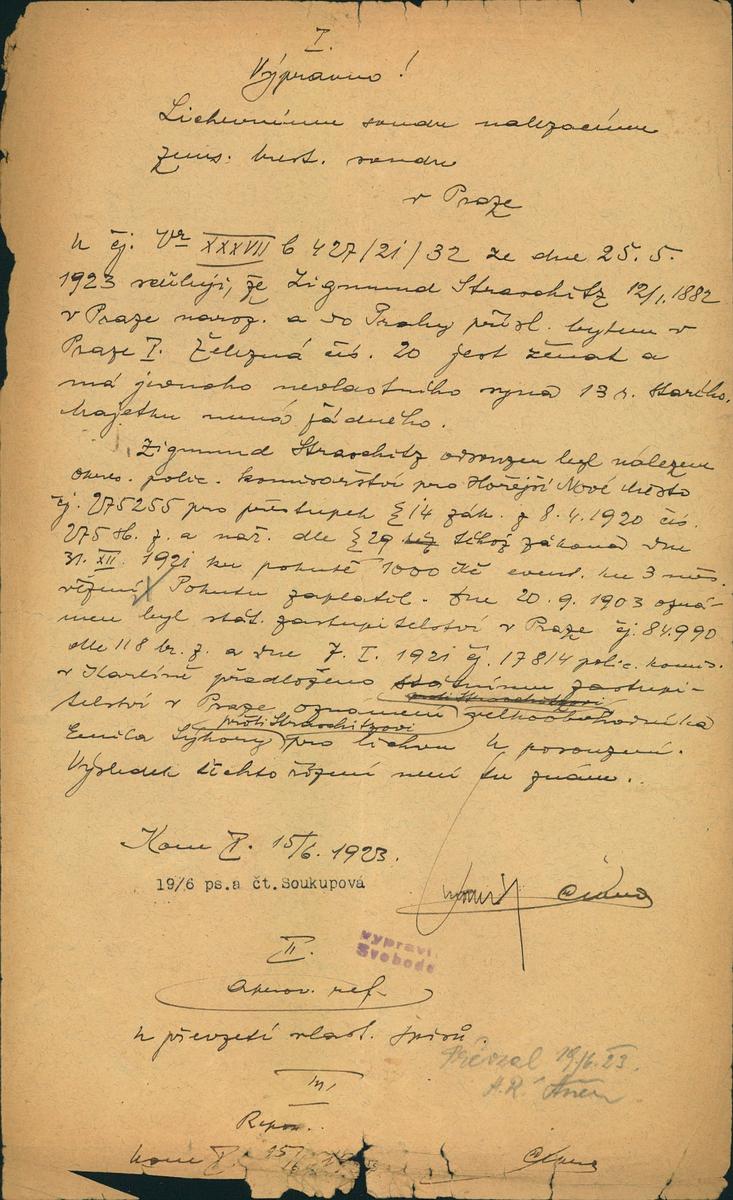 I.
Výpravno!
Lichevnímu soudu nalézacímu
zems. trest. soudu
v Praze
K čj. Vr XXXVII b 427/21/32 ze dne 25.5.
1923 sděluji, že Zigmund Straschitz 12/1.1882
v Praze naroz. a do Prahy přísl. bytem v
Praze I. Železná čís. 20 jest ženat a
má jednoho nevlastního syna 13 r. starého.
Majetku nemá žádného.
Zigmund Straschitz odsouzen byl nálezem
okres. polic. komisařství pro Hořejší Nové Město
čj. 275255 pro přestupek § 14 zák. z 8.4.1920 čís.
275 Sb. z. a nař. dle § 29 téhož zákona dne
31. XII. 1921 ku pokutě 1000 Kč event. ku 3 měs.
vězení. Pokutu zaplatil. Dne 20.9.1903 ozná-
men byl stát. zastupitelství v Praze čj. 84.990
dle 118 br. z. a dne 7. I. 1921 čj. 17814 polic. komis.
v Karlíně předloženo státnímu zastupi-
proti Straschitzovi
telství v Praze oznámení velkoobchodníka
proti Straschitzovi
Emila Sýkory pro lichvu k posouzení.
Výsledek těchto řízení není tu znám.
Kom I. 15/6. 1923.
19/6 ps.a čt.Soukupová
II.
vypravi.
Svoboda
ref.
K převzetí vlast. spisů.
Převzal 19/6.23.
III
Kom I. 15/6